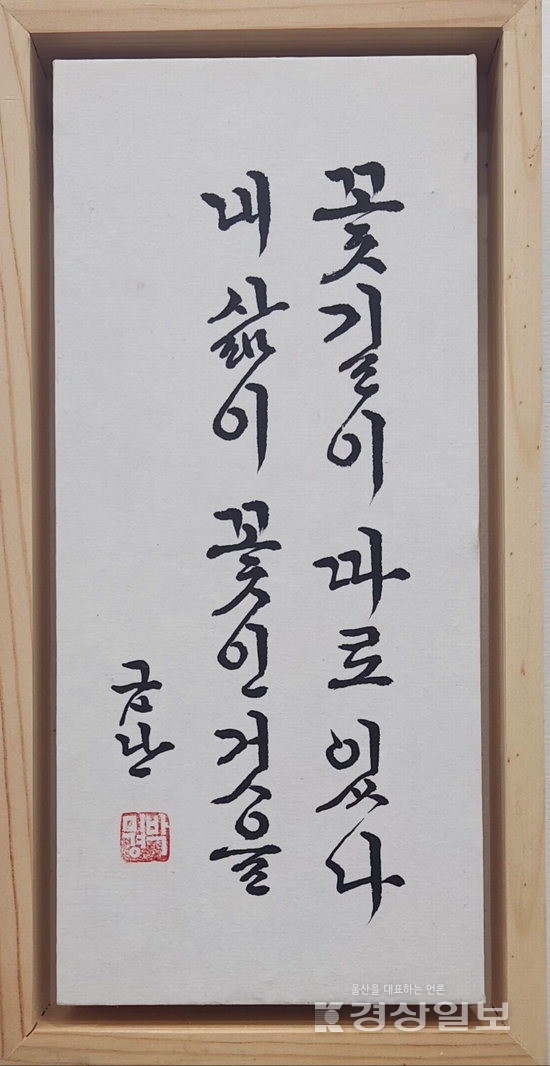 꽃길이 따로 있나
내 삶이 꽃인 것을
금난
울산을 대표하는 언론
경상일보